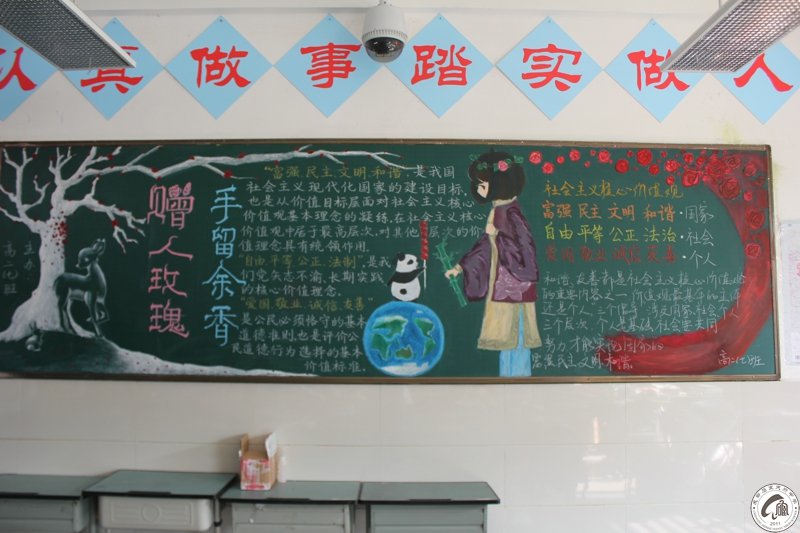 认真做事踏实做人
赠人玫瑰
手留余香
高二化班
“富强 民主 文明 和谐”,是我国
社会主义现代化国家的建设目标,
也是从价值目标层面对社会主义核心
价值观基本理念的凝练,在社会主义核心
价值观中居于最高层次,对其他层次的价
值理念具有统领作用。
“自由、平等、公正、法制”,是我
们党矢志不渝、长期实践
的核心价值理念。
“爱国、敬业、诚信、友善”
是公民必须恪守的基本
道德准则,也是评价公
民道德行为选择的基本
价值标准.
社会主义核心价值观
富强 民主 文明 和谐·国家
自由 平等 公正 法治·社会
爱国 敬业 诚信 友善·个人
和谐、友善都是社会主义核心价值观
的重要内容之一
三个层次
努力才能实现
富强民主文明和谐。
高二化班
2011